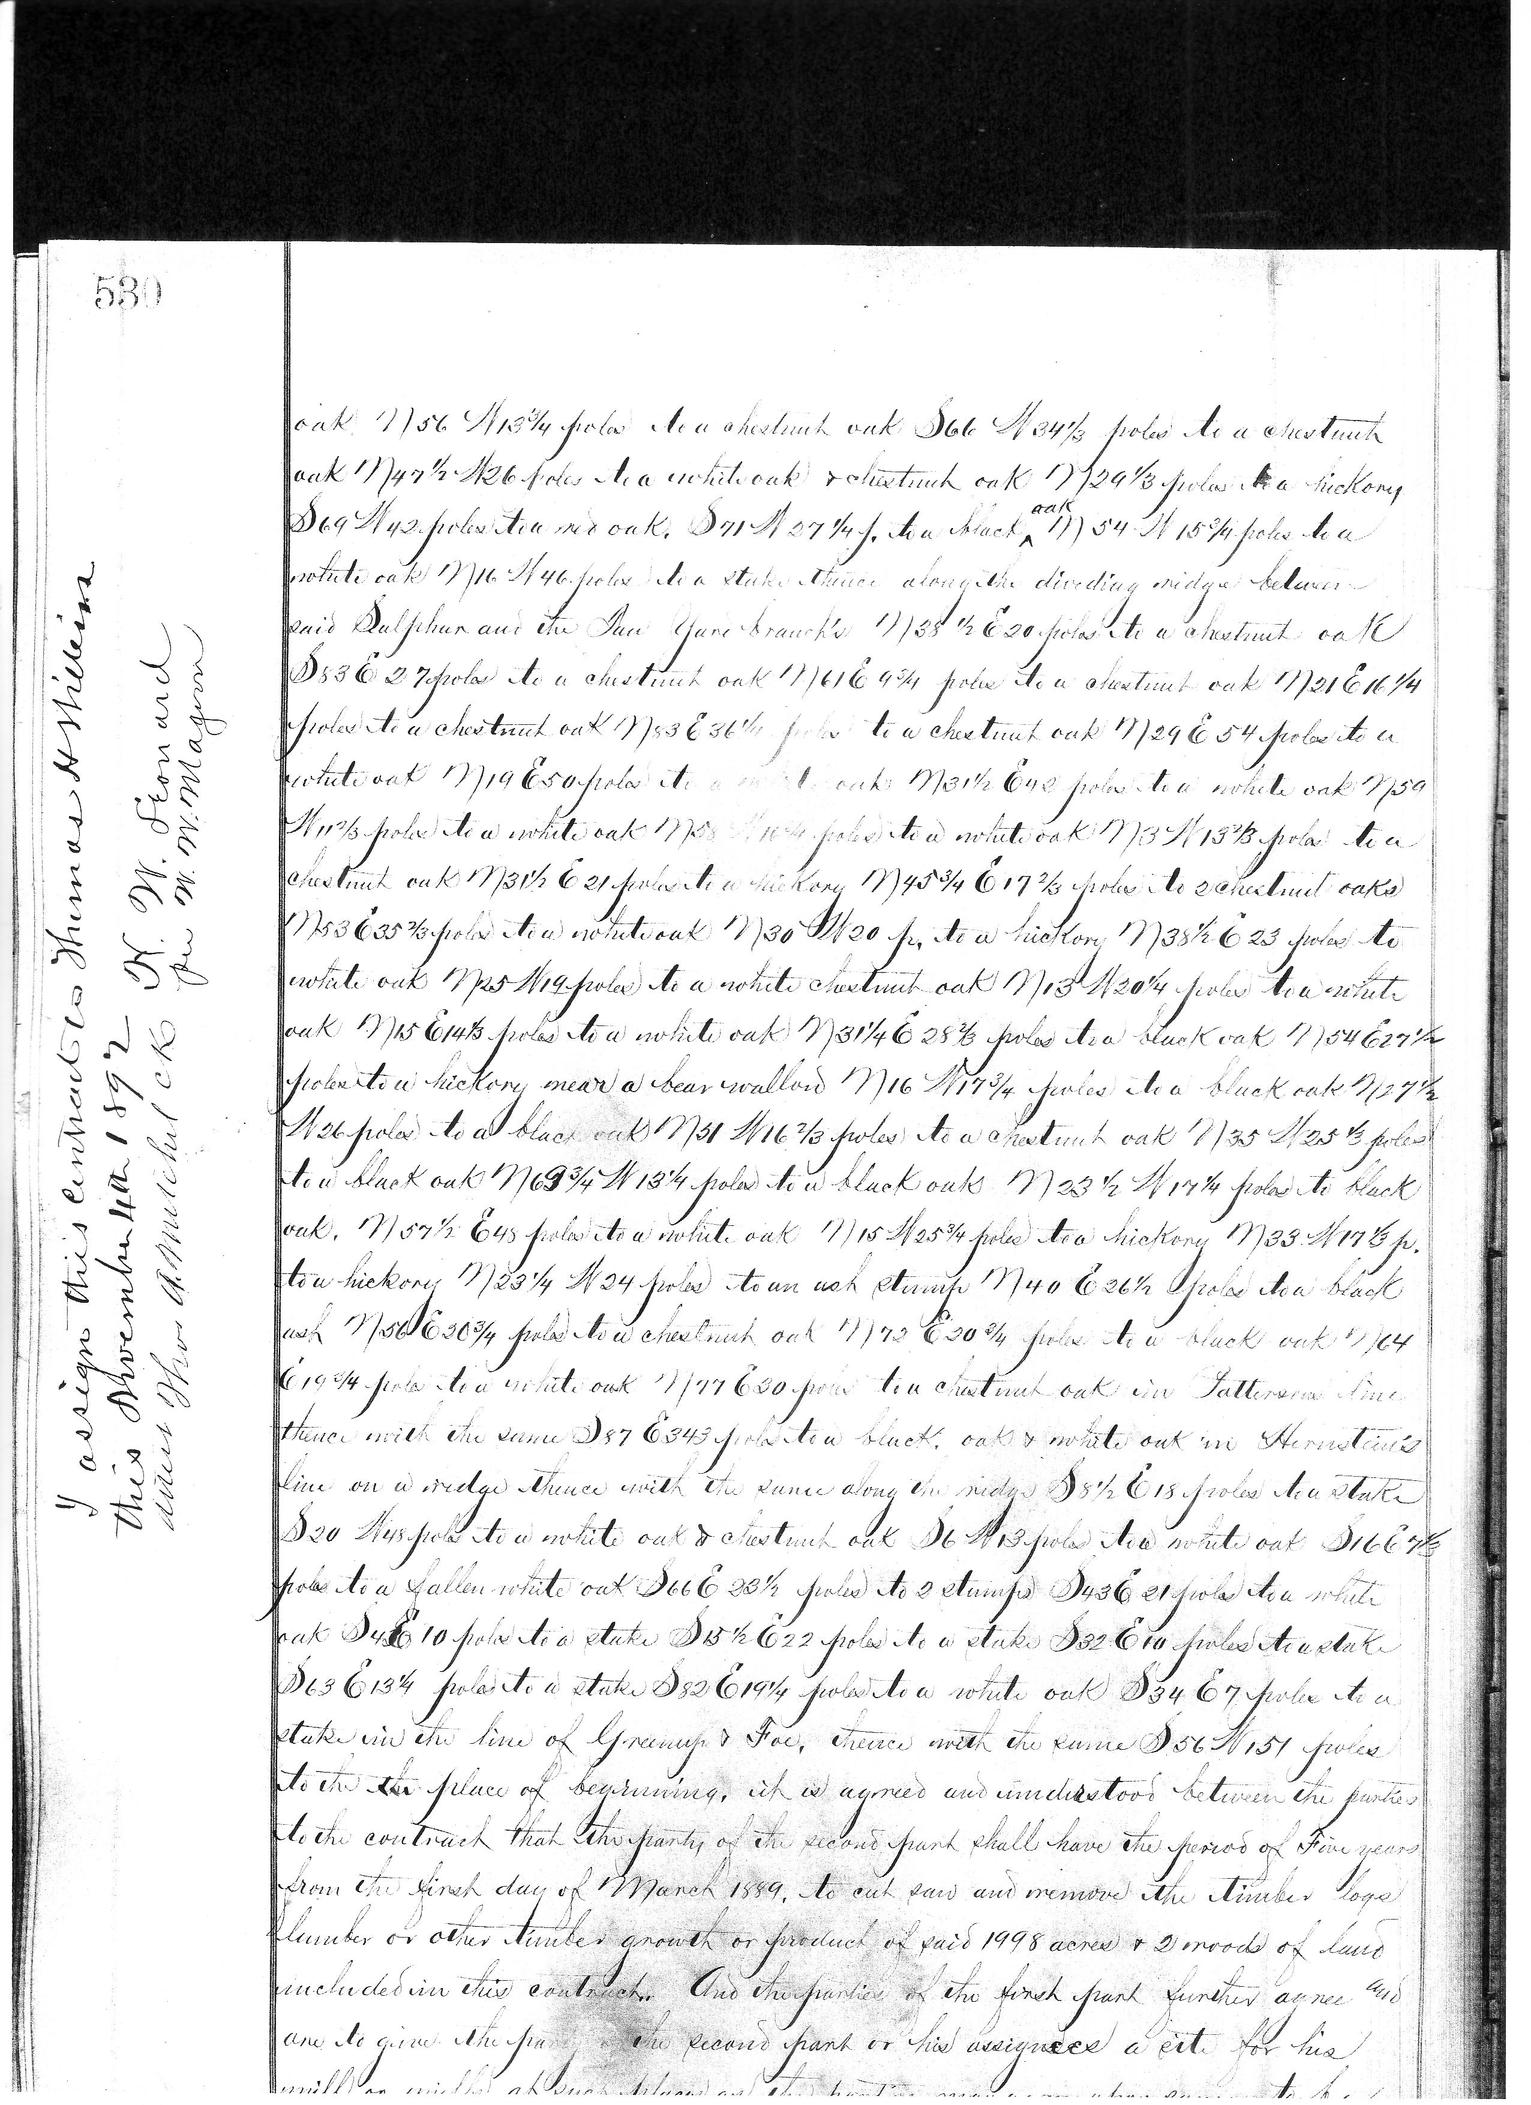 530
oak N56 W13 3/4 poles to a chestnut oak S66 W34 1/3 poles to a chestnut
oak N47 1/2 W26 poles to a white oak & chestnut oak N29 1/3 poles to a hickory
S69 W42 poles to a red oak. S71 W27 1/4 p. to a black ^oak N54 W15 3/4 poles to a
white oak N16 W46 poles to a stake thence along the dividing ridge between
said Sulphur and the Tan Yard branch's N38 1/2 E20 poles to a chestnut oak
S83 E27 poles to a chestnut oak N61 E9 3/4 poles to a chestnut oak N21 E16 1/4
poles to a chestnut oak N83 E36 1/4 poles to a chestnut oak N29 E54 poles to a
white oak N19 E50 poles to a white oak N31 1/2 E42 poles to a white oak N59
W11 2/3 poles to a white oak N58 poles to a white oak N3 W13 2/3 poles to a
chestnut oak N31 1/2 E21 poles to a hickory N45 3/4 E17 2/3 poles to 2 chestnut oaks
N53 E35 2/3 poles to a white oak N30 W20 p. to a hickory N38 1/2 E23 poles to
white oak N25 W19 poles to a white chestnut oak N13 W20 1/4 poles to a white
oak N15 E14 1/3 poles to a white oak N31 1/4 E28 2/3 poles to a black oak N54 E27 1/2
poles to a hickory near a bear wallow N16 W17 3/4 poles to a black oak N27 1/2
W26 poles to a black oak N51 W16 2/3 poles to a chestnut oak N35 W25 1/3 poles
to a black oak N69 3/4 W13 1/4 poles to a black oak N23 1/2 W17 1/4 poles to black
oak. N57 1/2 E48 poles to a white oak N15 W25 3/4 poles to a hickory N33 W17 1/3 p.
to a hickory N23 1/4 W24 poles to an ash stump N40 E26 1/2 poles to a black
ash N56 E20 3/4 poles to a chestnut oak N72 E20 3/4 poles to a black oak N64
E19 3/4 poles to a white oak N77 E30 poles to a chestnut oak in Pattersons line
thence with the same S87 E343 poles to a black. oak & white oak in Hirnstein's
line on a ridge thence with the same along the ridge S8 1/2 E18 poles to a stake
S20 W48 poles to a white oak & chestnut oak S6 W13 poles to a white oak S16 E7 1/3
poles to a fallen white oak S66 E23 1/2 poles to 2 stumps S43 E21 poles to a white
oak S4 E10 poles to a stake S15 1/2 E22 poles to a stake S32 E10 poles to a stake
S63 E13 1/4 poles to a stake S82 E19 1/4 poles to a white oak S34 E7 poles to a
stake in the line of Greenup & Foe, thence with the same S56 W151 poles
to the the place of beginning, it is agreed and understood between the parties
to the contract that the party of the second part shall have the period of Five years
from the first day of March 1889, to cut saw and remove the timber logs
lumber or other timber growth or product of said 1998 acres & 2 roods of land
included in this contract. And the parties of the first part further agree and
are to give the party of the second part or his assignees a site for his
mill or mills at such places
I assign this contract to Thomas H Williams
this November 4th 1892 K. W. Leonard
per W. W. Magann